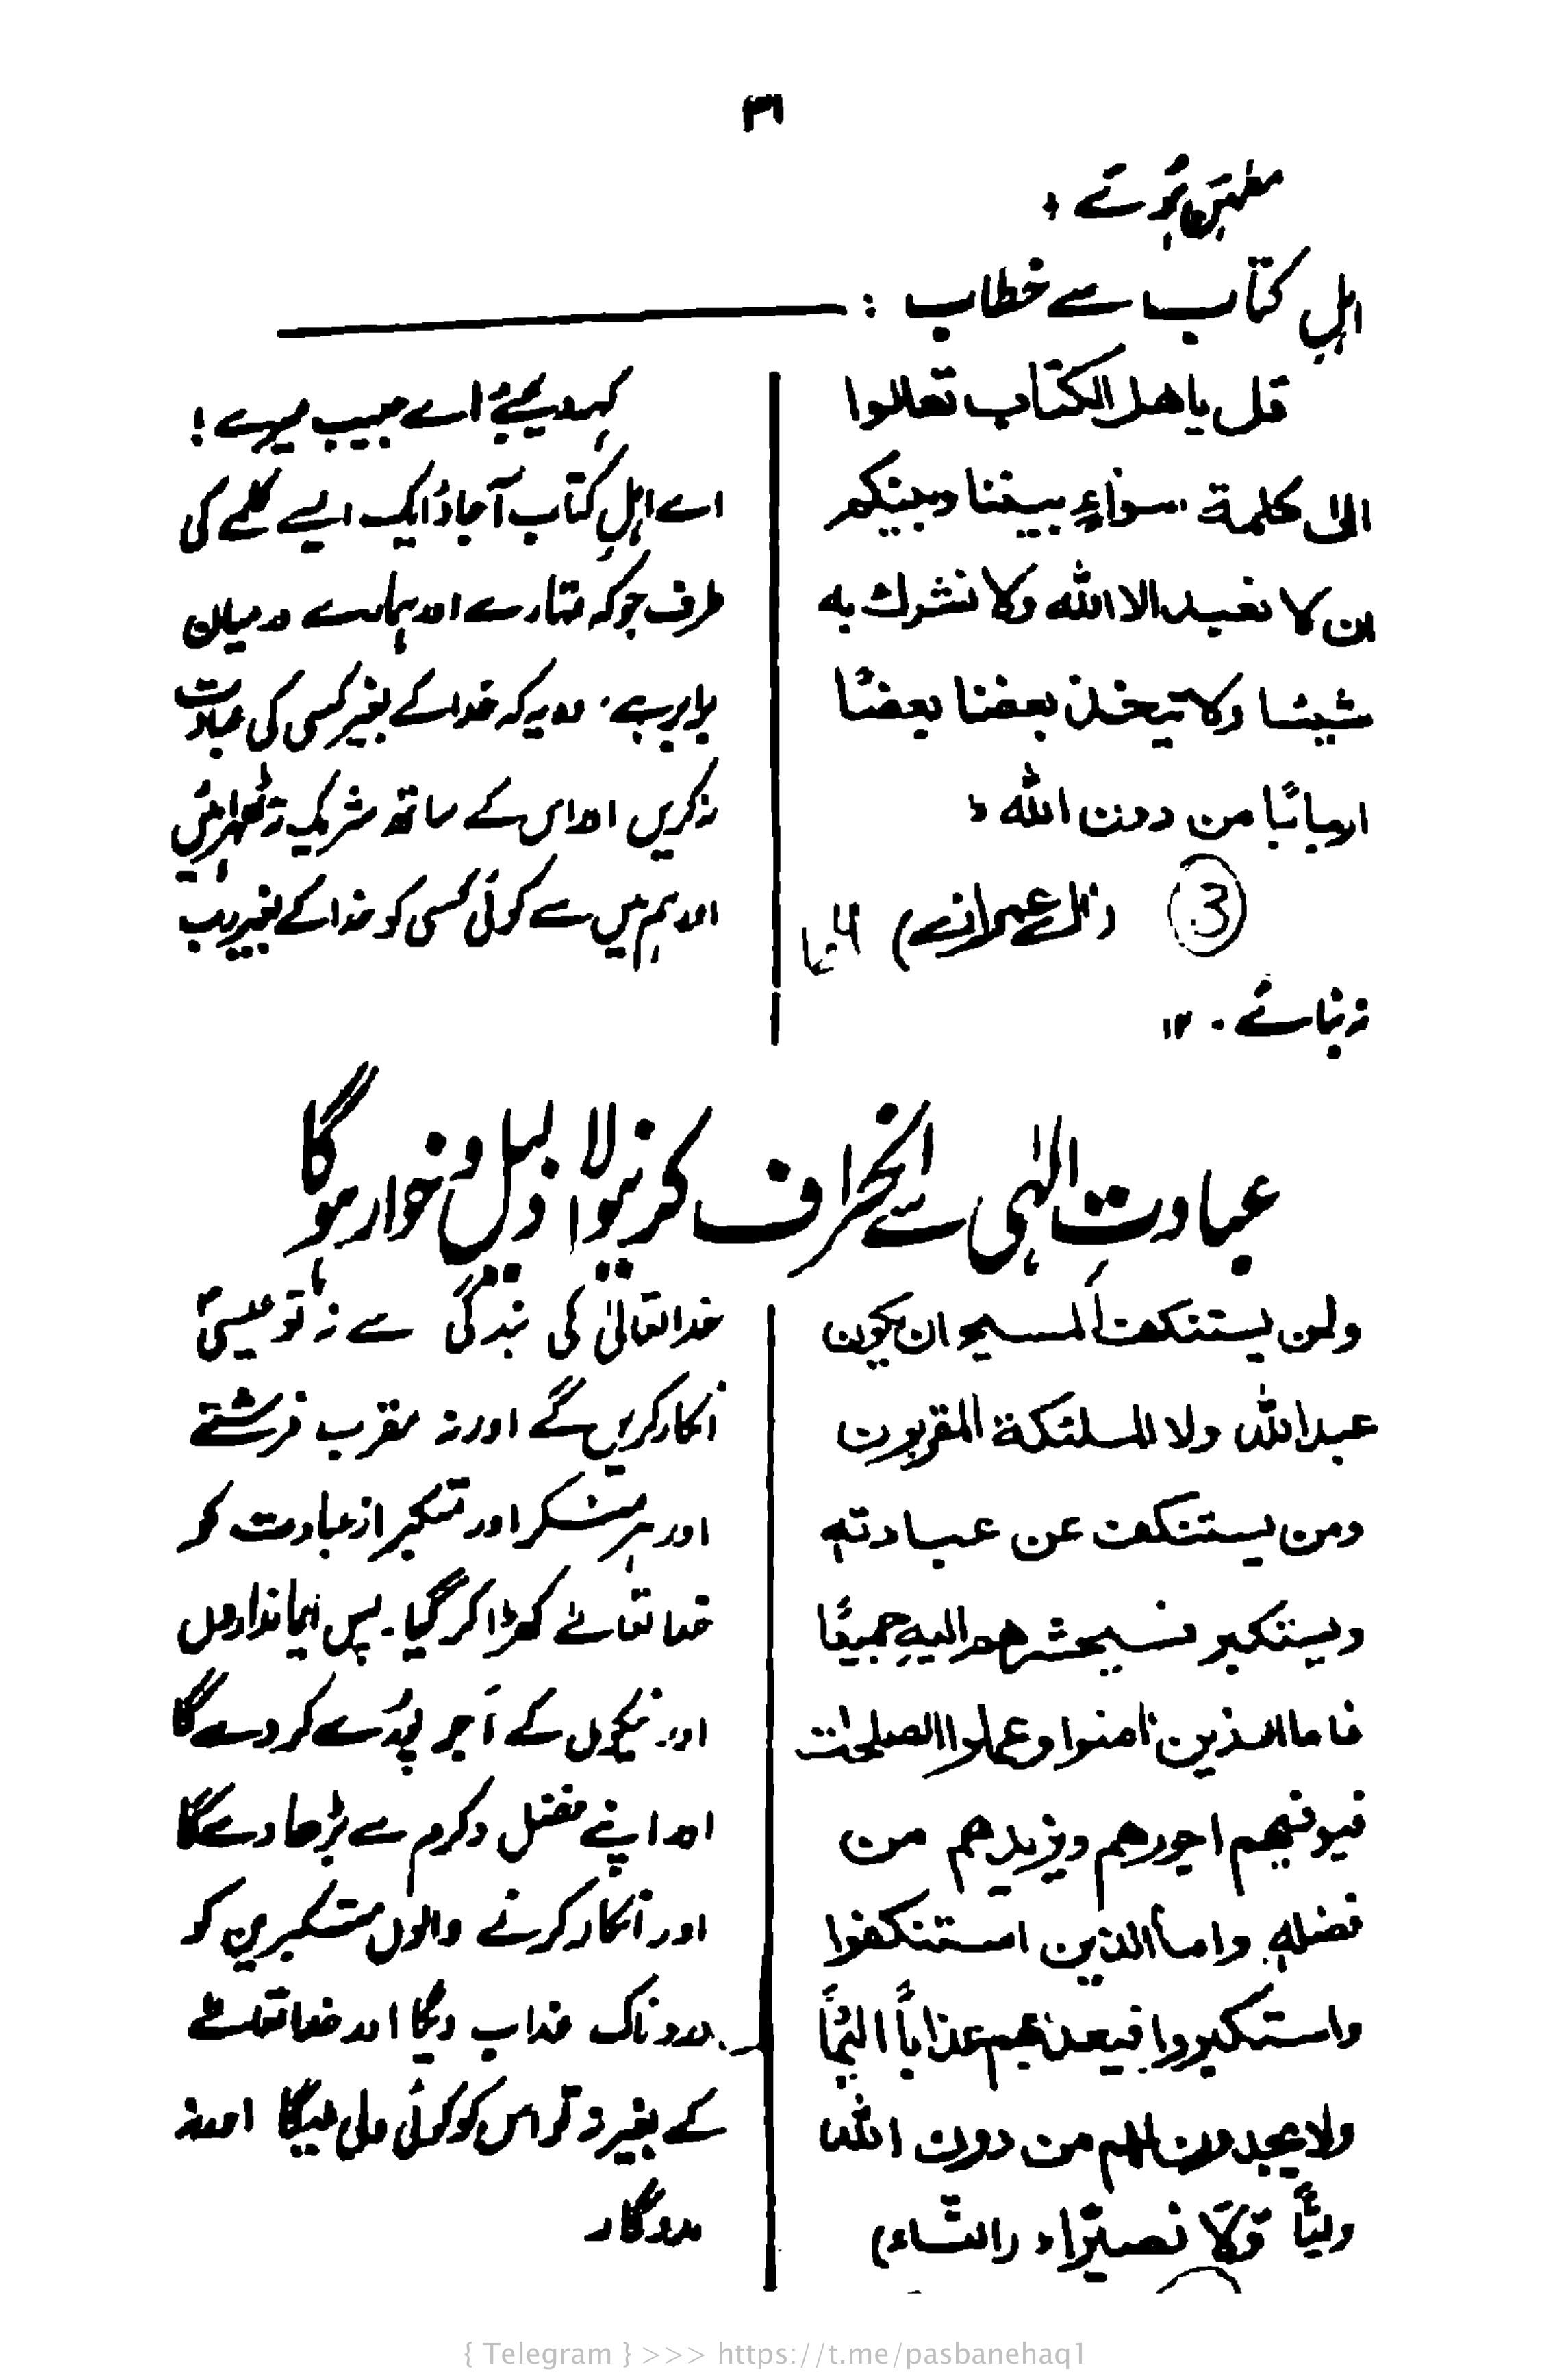 ۳۱
مطمئن ہوئے ؛
اہلِ کتاب سے خطاب :
قل یاھل الکتاب تعالوا
الیٰ کلمة سواءٍ بیننا وبینکم
ان لا نعبد الا اللہ ولا نشرك به
شیئًا ولا یتخذ بعضنا بعضًا
اربابًا من دون اللہ ؛
③ (اٰل عمران)
کہہ دیجئے اے حبیب میرے !
اے اہلِ کتاب آجاؤ ایک ایسے کلمے کی
طرف جو کہ تمہارے اور ہمارے درمیان
برابر ہے۔ وہ یہ کہ خدا کے بغیر کسی کی عبادت
نہ کریں اور اس کے ساتھ شریک نہ ٹھہرائیں
اور ہم میں سے کوئی کسی کو خدا کے بغیر رب
نہ بنائے ۔ ۱۲
عبادتِ الٰہی سے انحراف کرنیوالا ذلیل و خوار ہوگا
ولن یستنکف المسیح ان یکون
عبد اللہ ولا الملئکة المقربون
ومن یستنکف عن عبادتهٖ
ویستکبر فسیحشرھم الیهِ جمیعًا
فاما الذین اٰمنوا وعملوا الصلحٰت
فیوفیھم اجورھم ویزیدھم من
فضلهٖ واما الذین استنکفوا
واستکبروا فیعذبھم عذاباً الیمًا
ولا یجدون لھم من دون اللہ
ولیًّا وَّلَا نصیرًا ؛ (النساء)
خدا تعالیٰ کی بندگی سے نہ تو عیسیٰؑ
انکار کریں گے اور نہ مقرب فرشتے
اور ہر منکر اور متکبر از عبادت کو
خدا تعالےٰ کھڑا کر گیا۔ پس ایمانداروں
اور نیکوں کے اَجر پورے کر دے گا
اور اپنے فضل و کرم سے بڑھا دے گا
اور انکار کرنے والوں متکبرین کو
دردناک عذاب دیگا اور خدا تعالےٰ
کے بغیر نہ تو اس کو کوئی ولی ملیگا اور نہ
مددگار
{ Telegram } >>> https://t.me/pasbanehaq1